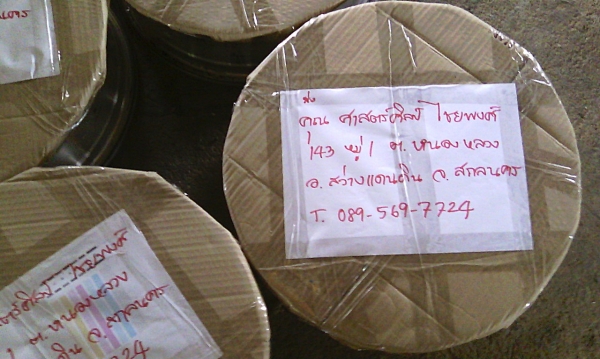 ส่ง
คุณ ศาสตร์ศิลป์ ไชยพงศ์
143 หมู่ 1 ต. หนองหลวง
อ. สว่างแดนดิน จ. สกลนคร
T. 089-569-7724
ไชยพงศ์
ต. หนองหลวง
จ. สกลนคร
7724